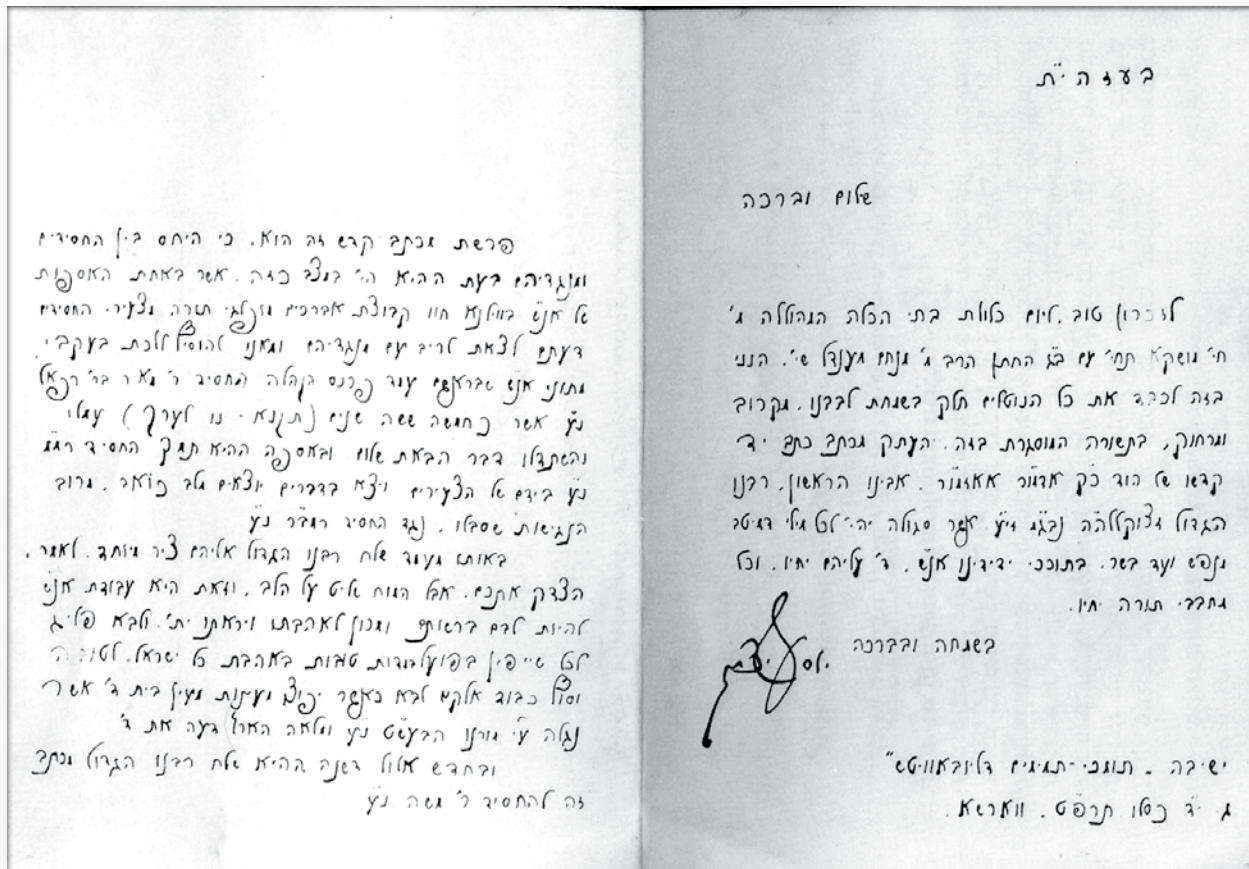 בעזהי״ת
שלום וברכה
לזכרון טוב, ליום כלולת בתי הכלה המהוללה מ׳
חי׳ מושקא תחי׳ עם ב״ג החתן הרב מ׳ מנחם מענדל שי׳, הנני
בזה לכבד את כל הנוטלים חלק בשמחת לבבנו, מקרוב
ומרחוק, בתשורה המוסגרת בזה, העתק מכתב כתב יד
קדשו של הוד כ״ק אדמו״ר אאזמו״ר, אבינו הראשון, רבנו
הגדול זצוקללה״ה נבג״מ זי״ע, אשר סגולה יהי׳ לכל מילי דמיטב
מנפש ועד בשר, בתוככי ידידינו אנ״ש, ד׳ עליהם יחיו, וכל
מחבבי תורה יחיו.
בשמחה ובברכה
ישיבה ״תומכי-תמימים דליובאוויטש״
ג׳ י״ד כסלו תרפ״ט, ווארשא.
פרשת מכתב קדש זה הוא, כי היחס בין החסידים
ומנגדיהם בעת ההיא הי׳ במצב כזה, אשר באחת האספות
של אנ״ש בווילנא חוו קבוצת אברכים מופלגי תורה מצעירי החסידים
דעתם לצאת לריב עם מנגדיהם ומאנו להוסיף ללכת בעקבי
מתוני אנ״ש שבראשם עמד פרנס הקהלה החסיד ר׳ מאיר בר׳ רפאל
נ״ע אשר כחמשה ששה שנים (תקנא - נו לערך) עמלו
והשתדלו דבר הבאת שלום, ובאספה ההיא תמך החסיד רמ״מ
נ״ע בידם של הצעירים ויצא בדברים יוצאים מלב כואב, מרוב
הנגישות שסבלו, נגד החסיד רמב״ר נ״ע
באותו מעמד שלח רבנו הגדול אליהם ציר מיוחד, לאמר,
הצדק אתכם, אבל המוח שליט על הלב, וזאת היא עבודת אנ״ש
להיות לבם ברשותם ומכון לאהבתו ויראתו ית׳, ולבא פליג
לכל שייפין בפועל בנודות טובות באהבת כל ישראל, לטובה
וסוף כבוד אלקים לבא כאשר יפוצו מעינות מעין בית ד׳ אשר
נגלה ע״י מורנו הבעש״ט נ״ע ומלאה הארץ דעה את ד׳
ובחדש אלול דשנה ההיא שלח רבנו הגדול מכתב
זה להחסיד ר׳ משה נ״ע